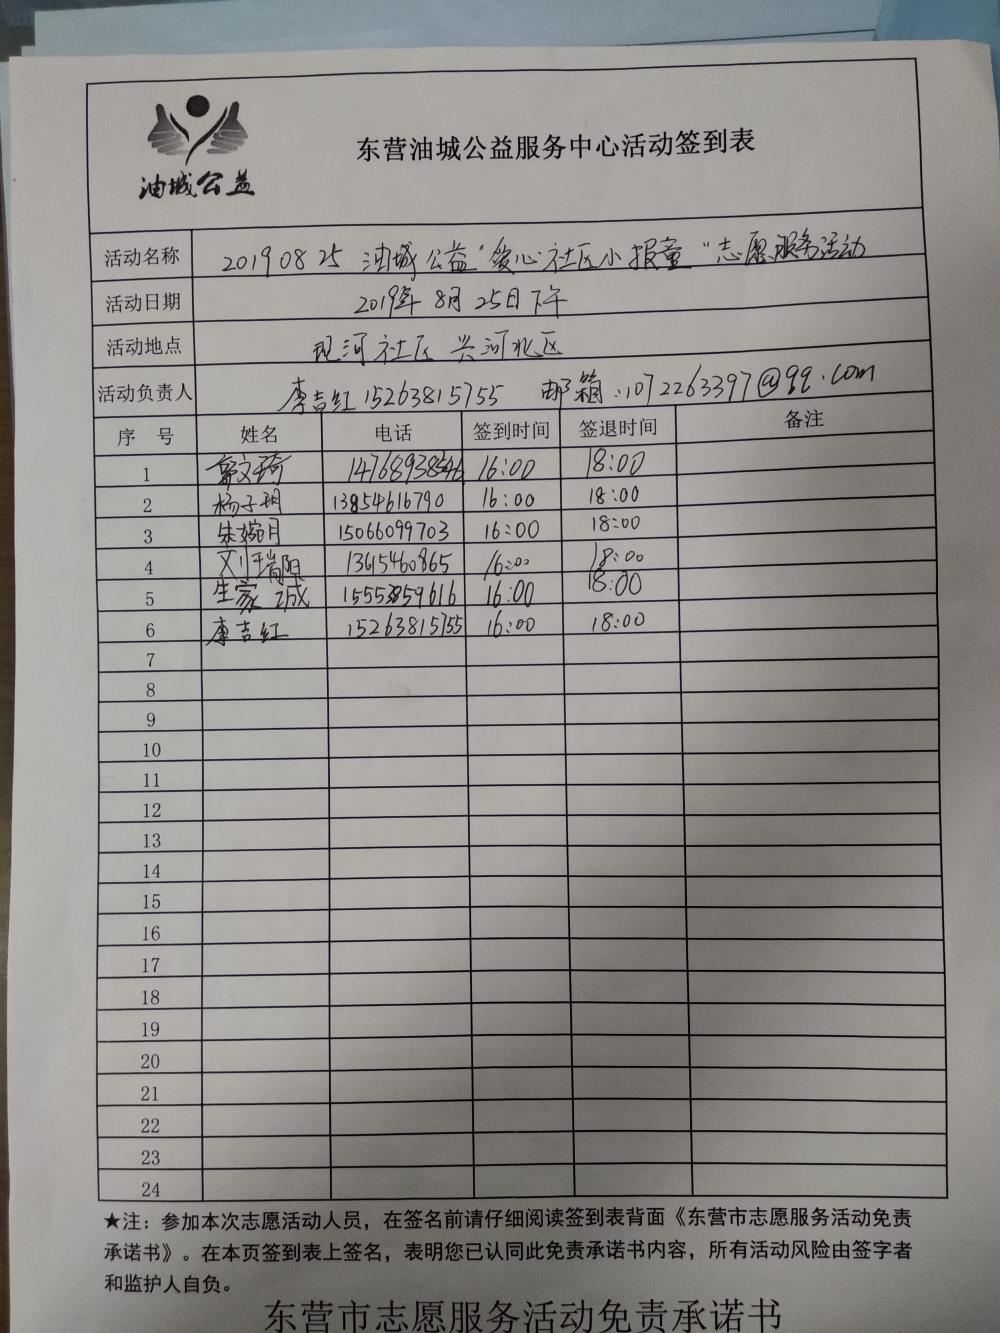 油城公益
东营油城公益服务中心活动签到表
活动名称 20190825 油城公益"爱心社区小报童"志愿服务活动
活动日期 2019年8月25日下午
活动地点 现河社区 兴河北区
活动负责人 李吉红 15263815755 邮箱:1072263397@qq.com
序 号 姓名 电话 签到时间 签退时间 备注
1 文琦 16:00 18:00
2 杨子玥 13854616790 16:00 18:00
3 朱婉月 15066099703 16:00 18:00
4 刘瑞阳 13615460865 16:00 18:00
5 生家诚 16:00 18:00
6 李吉红 15263815755 16:00 18:00
7
8
9
10
11
12
13
14
15
16
17
18
19
20
21
22
23
24
★注：参加本次志愿活动人员，在签名前请仔细阅读签到表背面《东营市志愿服务活动免责
承诺书》。在本页签到表上签名，表明您已认同此免责承诺书内容，所有活动风险由签字者
和监护人自负。
东营市志愿服务活动免责承诺书